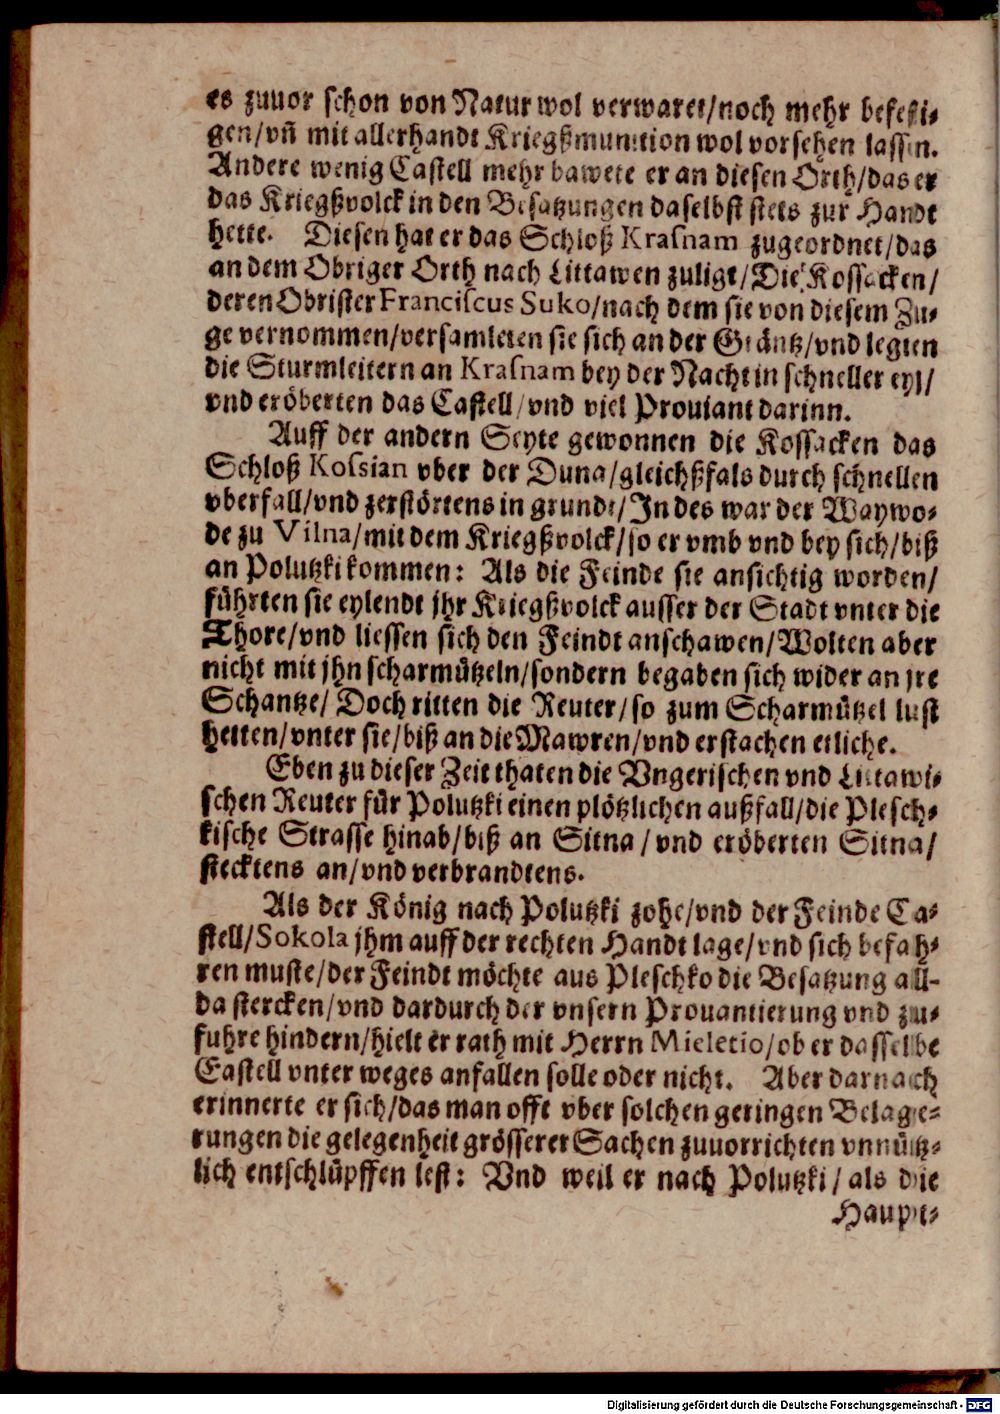 es zuuor schon von Natur wol verwaret/noch mehr befesti-
gen/vñ mit allerhandt Kriegßmunition wol vorsehen lassen.
Andere wenig Castell mehr bawete er an diesen Orth/das er
das Kriegßvolck in den Besatzungen daselbst stets zur Handt
hette. Diesen hat er das Schloß Krasnam zugeordnet/das
an dem Obriger Orth nach Littawen zuligt/Die Kossacken/
deren Obrister Franciscus Suko/nach dem sie von diesem Zu-
ge vernommen/versamleten sie sich an der Gräntz/vnd legten
die Sturmleitern an Krasnam bey der Nacht in schneller eyl/
vnd eröberten das Castell/vnd viel Prouiant darinn.
Auff der andern Seyte gewonnen die Kossacken das
Schloß Kossian vber der Duna/gleichßfals durch schnellen
vberfall/vnd zerstörtens in grundt/In des war der Waywo-
de zu Vilna/mit dem Kriegßvolck/so er vmb vnd bey sich/biß
an Polutzki kommen: Als die Feinde sie ansichtig worden/
führten sie eylendt jhr Kriegßvolck ausser der Stadt vnter die
Thore/vnd liessen sich den Feindt anschawen/Wolten aber
nicht mit jhn scharmützeln/sondern begaben sich wider an jre
Schantze/ Doch ritten die Reuter/so zum Scharmützel lust
hetten/vnter sie/biß an die Mawren/vnd erstachen etliche.
Eben zu dieser Zeit thaten die Vngerischen vnd Littawi-
schen Reuter für Polutzki einen plötzlichen außfall/die Plesch-
kische Strasse hinab/biß an Sitna/vnd eröberten Sitna/
stecktens an/vnd verbrandtens.
Als der König nach Polutzki zohe/vnd der Feinde Ca-
stell/Sokola jhm auff der rechten Handt lage/vnd sich befah-
ren muste/der Feindt möchte aus Pleschko die Besatzung all-
da stercken/vnd dardurch der vnsern Prouantierung vnd zu-
fuhre hindern/hielt er rath mit Herrn Mieletio/ob er dasselbe
Castell vnter weges anfallen solle oder nicht. Aber darnach
erinnerte er sich/das man offt vber solchen geringen Belage-
rungen die gelegenheit grösserer Sachen zuuorrichten vnnütz-
lich entschlüpffen lest: Vnd weil er nach Polutzki/als die
Haupt-
Digitalisierung gefördert durch die Deutsche Forschungsgemeinschaft - DFG